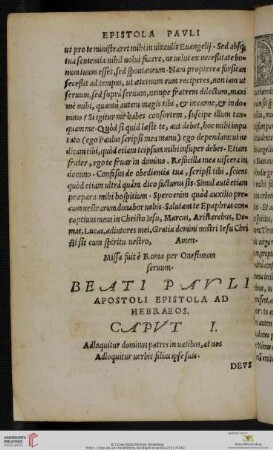 EPISTOLA PAVLI
ut pro te ministraret mihi in uinculis Euangelij. Sed absq;
tua sententia nihil uolui facere, ut ne uelut ex necessitate bo-
num tuum esset, sed spontaneum. Nam propterea forsitan
secessit ad tempus, ut æternum eum reciperes, non iam ut
seruum, sed suprà seruum, nempe fratrem dilectum, maxi
mè mihi, quantò autem magis tibi, & in carne, & in do-
mino? Si igitur me habes consortem, suscipe illum tan-
quam me. Quòd si quid læsit te, aut debet, hoc mihi impu
tato (ego Paulus scripsi mea manu) ego dependam: ut ne
dicam tibi, quòd etiam teipsum mihi insuper debes. Etiam
frater, ego te fruar in domino. Refocilla mea uiscera in
domino. Confisus de obedientia tua, scripsi tibi, sciens
quòd etiam ultra quàm dico facturus sis. Simul autē etiam
præpara mihi hospitium. Spero enim quòd auxilio pre-
cum uestrarum donabor uobis. Salutant te Epaphras con
captiuus meus in Christo Iesu, Marcus, Aristarchus, De-
mas. Lucas, adiutores mei, Gratia domini nostri Iesu Chri
sti sit cum spiritu uestro, Amen.
Missa fuit è Roma per Onesimum
seruum.
BEATI PAVLI
APOSTOLI EPISTOLA AD
HEBRAEOS.
CAPVT I.
Adloquitur dominus patres in uatibus, at nos
Adloquitur uerbis filius ipse suis.
DEVS